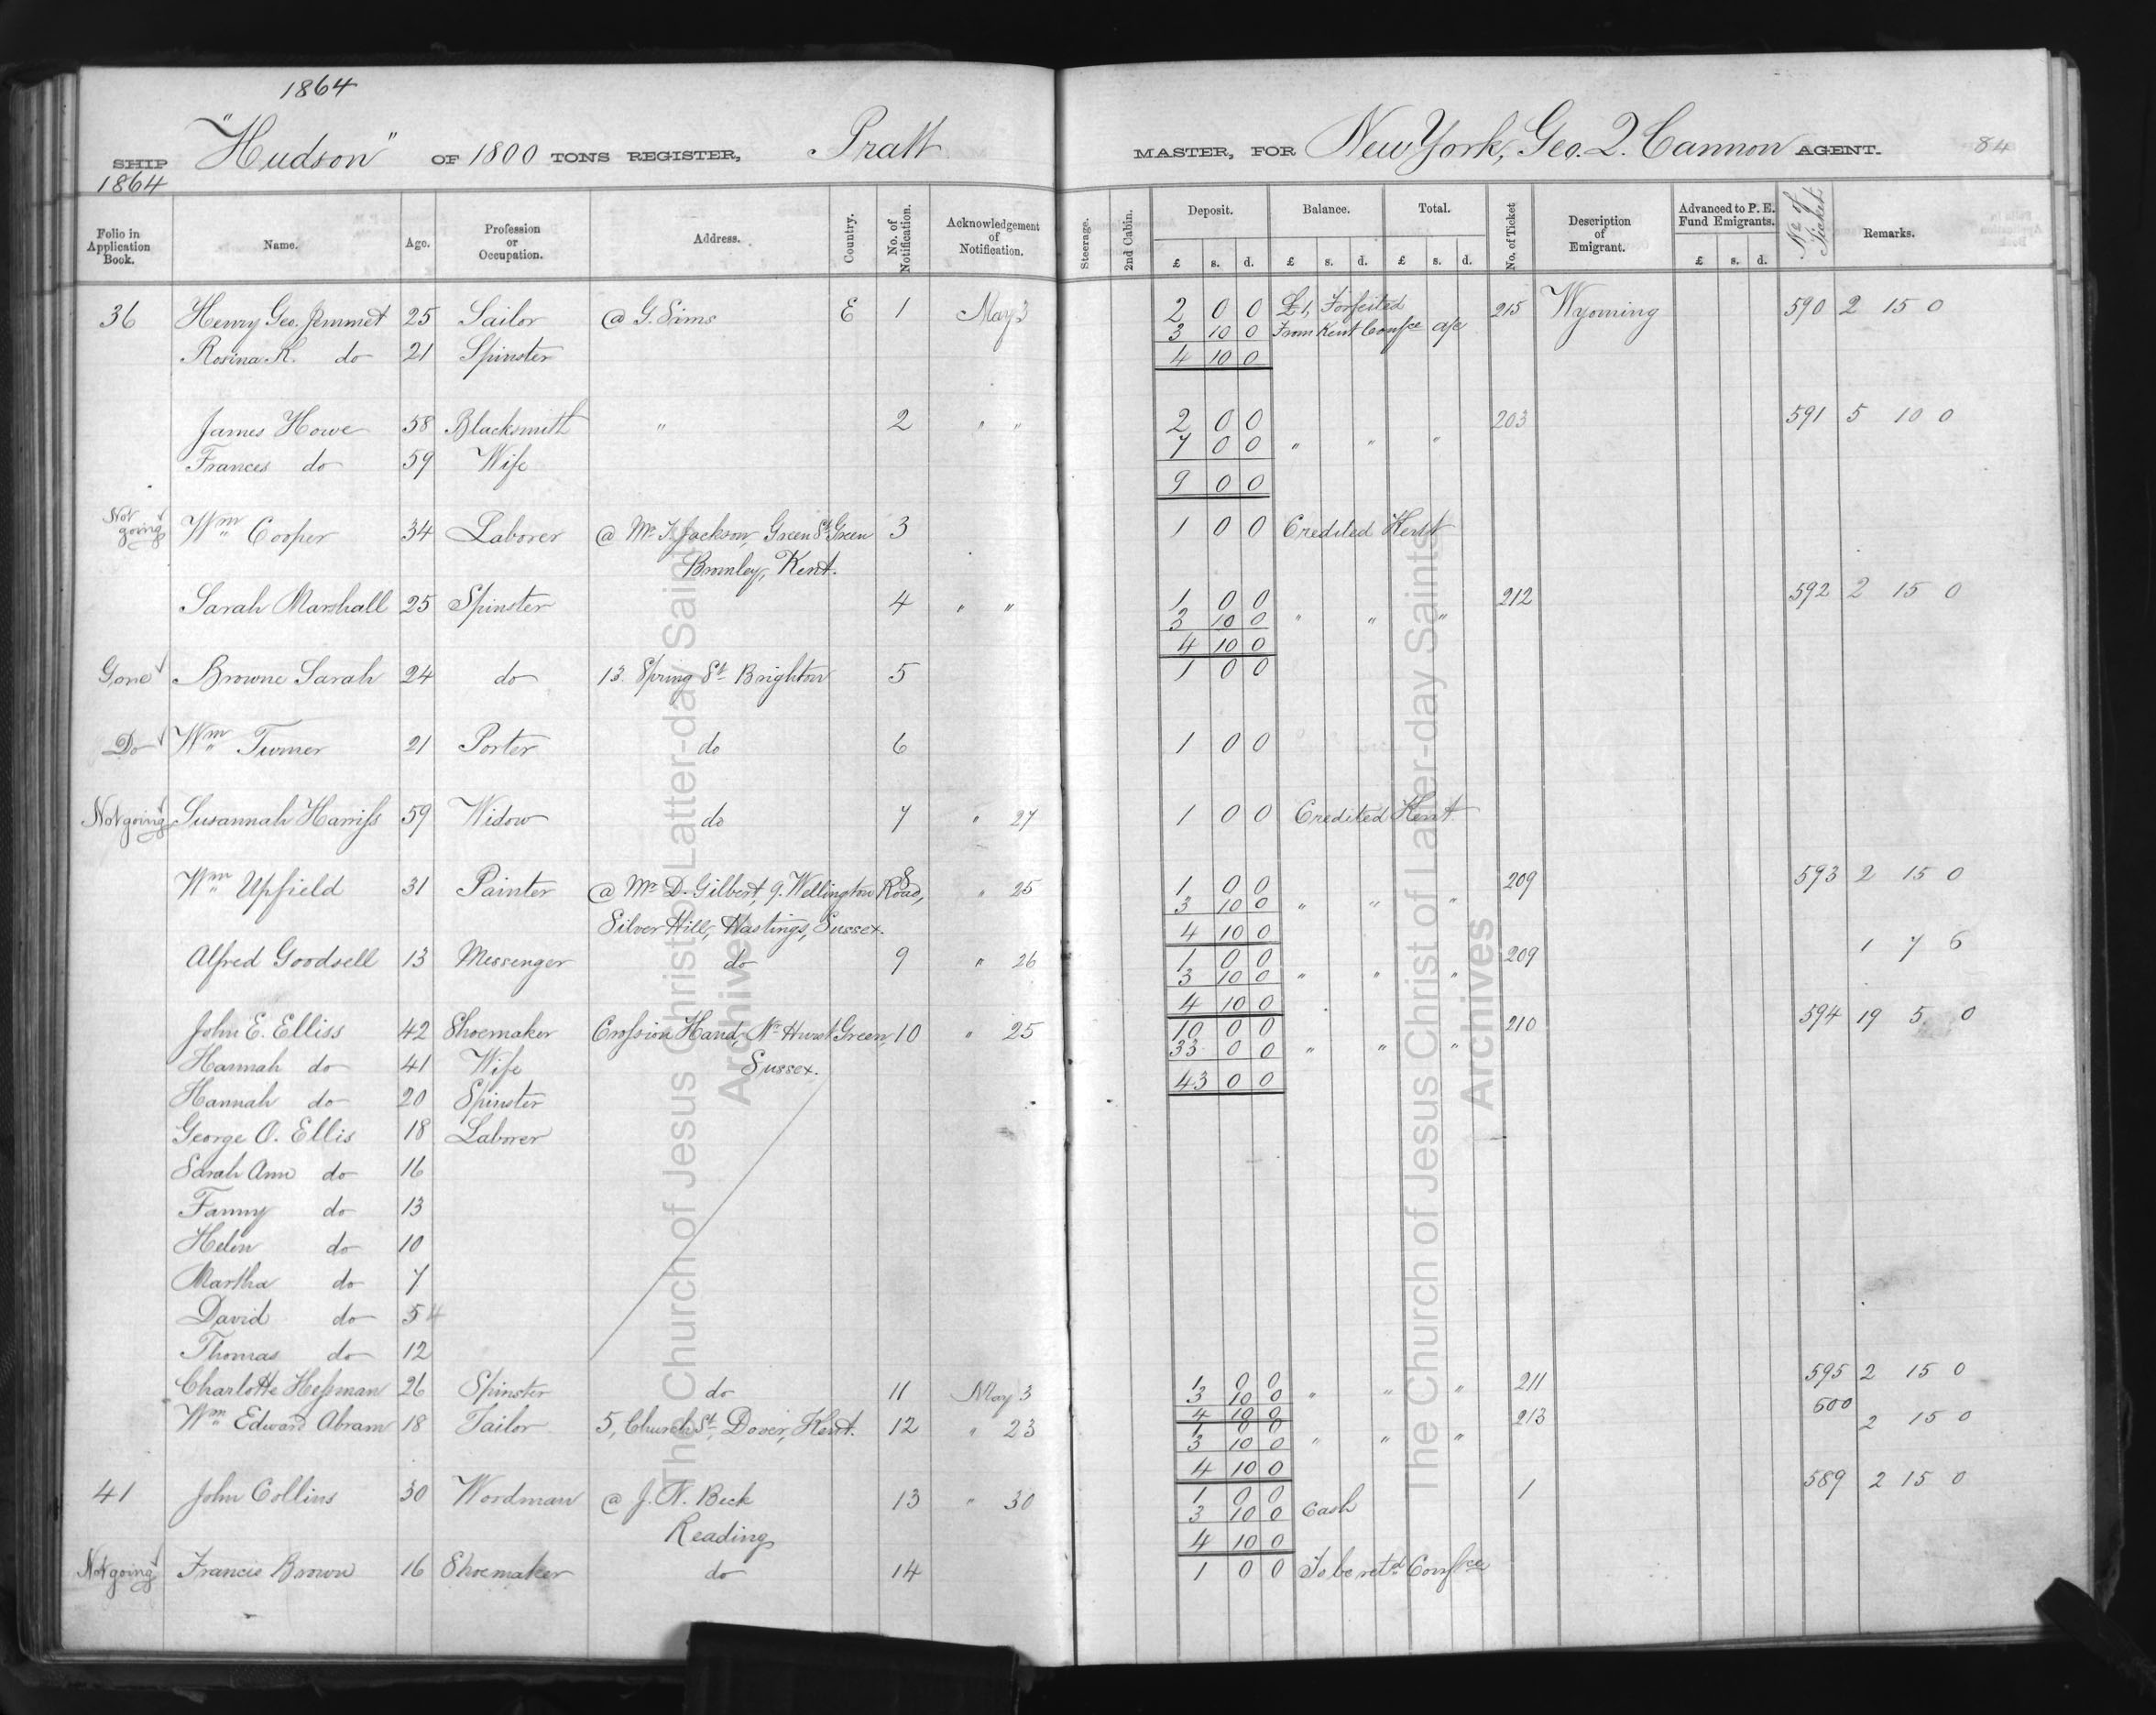 1864
SHIP "Hudson" OF 1800 TONS REGISTER, Pratt MASTER, FOR New York, Geo. Q. Cannon AGENT. 84
1864
Folio in Application Book. Name. Age. Profession or Occupation. Address. Country. No. of Notification. Acknowledgement of Notification. Steerage. 2nd Cabin. Deposit. Balance. Total. No. of Ticket Description of Emigrant. Advanced to P. E. Fund Emigrants. No. of Ticket Remarks.
£ s. d. £ s. d. £ s. d. £ s. d.
36 Henry Geo. Jemmet 25 Sailor @ G. Sims E 1 May 3 2 0 0 £1, Forfeited 215 Wyoming 590 2 15 0
3 10 0 From Kent Confce a/c
Rosina K. do 21 Spinster 4 10 0
James Howe 58 Blacksmith " 2 " " 2 0 0 203 591 5 10 0
7 0 0 " " "
Frances do 59 Wife 9 0 0
Not going Wm Cooper 34 Laborer @ Mr. T. Jackson, Green St. Green 3 1 0 0 Credited Kent
Bromley, Kent.
Sarah Marshall 25 Spinster 4 " " 1 0 0 212 592 2 15 0
3 10 0 " " "
4 10 0
Gone Browne Sarah 24 do 13 Spring St. Brighton 5 1 0 0
Do Wm Turner 21 Porter do 6 1 0 0
Not going Susannah Harriss 59 Widow do 7 " 27 1 0 0 Credited Kent
Wm Upfield 31 Painter @ Mr. D. Gilbert, 9. Wellington Road, 8 " 25 1 0 0 209 593 2 15 0
3 10 0 " " "
Silver Hill, Hastings, Sussex. 4 10 0
Alfred Goodsell 13 Messenger do 9 " 26 1 0 0 209 1 7 6
3 10 0 " " "
4 10 0
John E. Elliss 42 Shoemaker Crossion Hand, Nr. Hurst Green, 10 " 25 10 0 0 210 594 19 5 0
33 0 0 " " "
Hannah do 41 Wife Sussex. 43 0 0
Hannah do 20 Spinster
George O. Ellis 18 Laborer
Sarah Ann do 16
Fanny do 13
Helen do 10
Martha do 7
David do 5 4
Thomas do 12
Charlotte Hessman 26 Spinster do 11 May 3 1 0 0 211 595 2 15 0
3 10 0 " " "
4 10 0
Wm Edward Abram 18 Tailor 5, Church St., Dover, Kent. 12 " 23 1 0 0 213 600 2 15 0
3 10 0 " " "
4 10 0
41 John Collins 30 Woodman @ J. N. Beck 13 " 30 1 0 0 1 589 2 15 0
3 10 0 Cash
Reading 4 10 0
Not going Francis Brown 16 Shoemaker do 14 1 0 0 To be retd. Confce
The Church of Jesus Christ of Latter-day Saints
Archives
The Church of Jesus Christ of Latter-day Saints
Archives